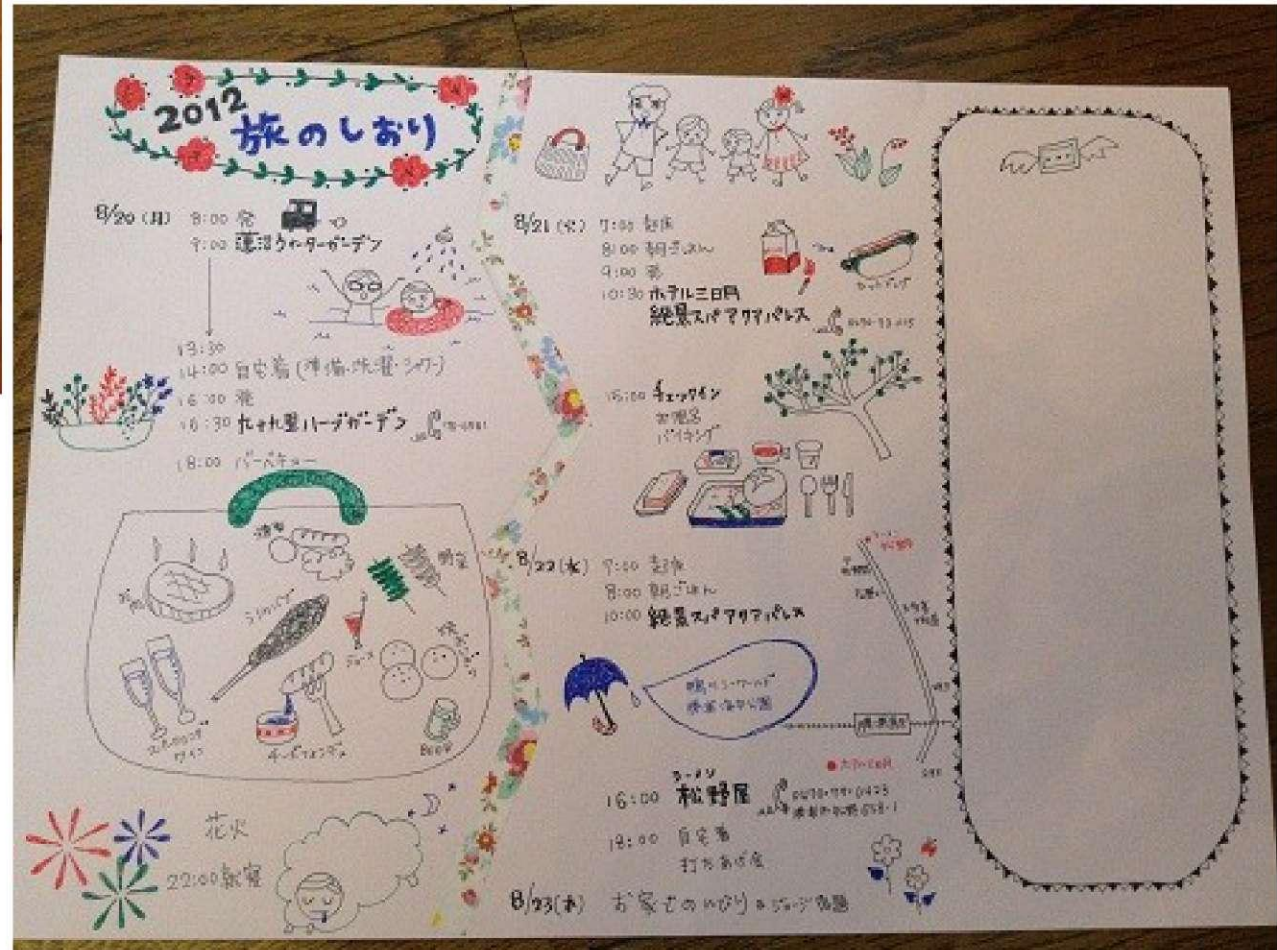 2012
旅のしおり
8/20(月) 8:00 発
9:00 蓮沼ウォーターガーデン
13:30
14:00 自宅着(準備・洗濯・シャワー)
16:00 発
16:30 九十九里ハーブガーデン
18:00 バーベキュー
野菜
ジュース
スパークリング
ワイン
チーズフォンデュ
BEER
花火
22:00 就寝
8/21(火) 7:00 起床
8:00 朝ごはん
9:00 発
10:30 ホテル三日月
絶景スパ アクアパレス
ホットドッグ
15:00 チェックイン
お風呂
バイキング
8/22(水) 7:00 起床
8:00 朝ごはん
10:00 絶景スパ アクアパレス
鴨川シーワールド
勝浦海中公園
ラーメン
16:00 松野屋
18:00 自宅着
打ちあげ会
8/23(木) お家でのんびり